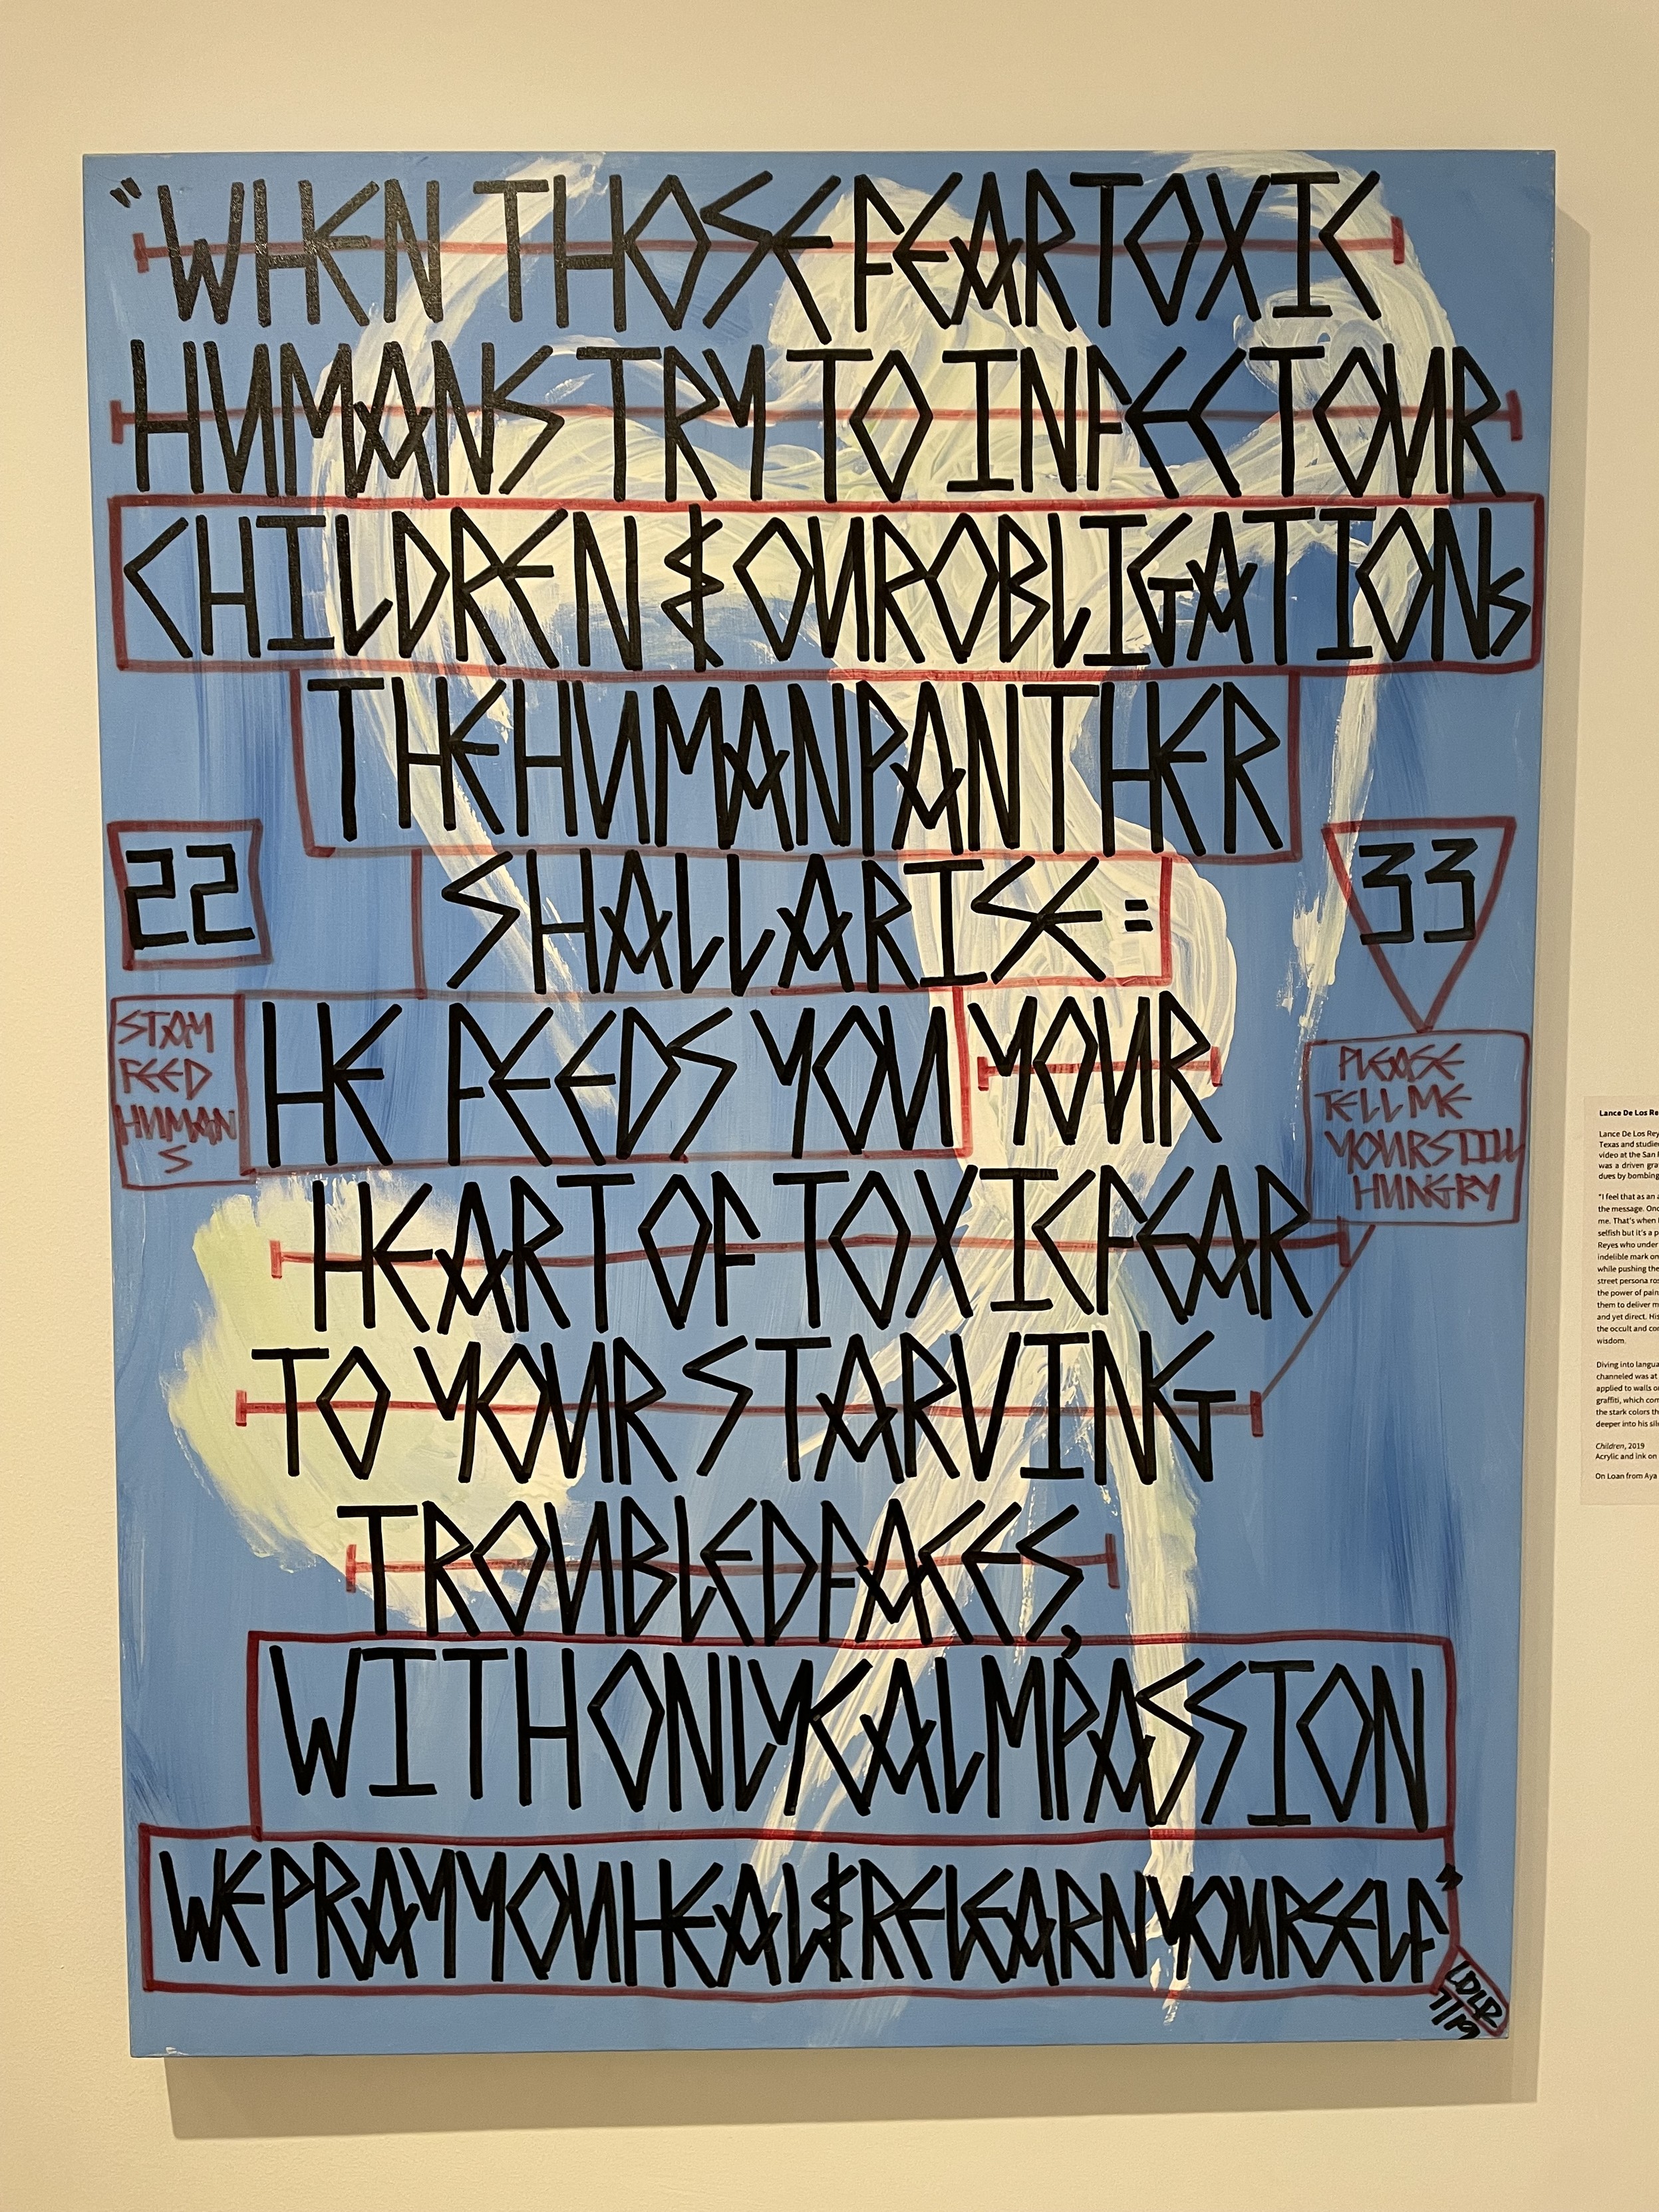 "WHEN THOSE FEAR TOXIC
HUMANS TRY TO INFECT OUR
CHILDREN & OUR OBLIGATIONS
THE HUMAN PANTHER
SHALL ARISE =
22
33
HE FEEDS YOU YOUR
STAY
FEED
HUMAN
S
PLEASE
TELL ME
YOUR STILL
HUNGRY
HEART OF TOXIC FEAR
TO YOUR STARVING
TROUBLED FACES,
WITH ONLY CALMPASSION
WE PRAY YOU HEAL & RELEARN YOURSELF"
LDLR
7/19
Lance De Los Re
Lance De Los Rey
Texas and studie
video at the San
was a driven gra
dues by bombing
"I feel that as an a
the message. Onc
me. That's when
selfish but it's a p
Reyes who under
indelible mark on
while pushing the
street persona ros
the power of pain
them to deliver m
and yet direct. His
the occult and co
wisdom.
Diving into langua
channeled was at
applied to walls o
graffiti, which com
the stark colors th
deeper into his sil
Children, 2019
Acrylic and ink on
On Loan from Aya